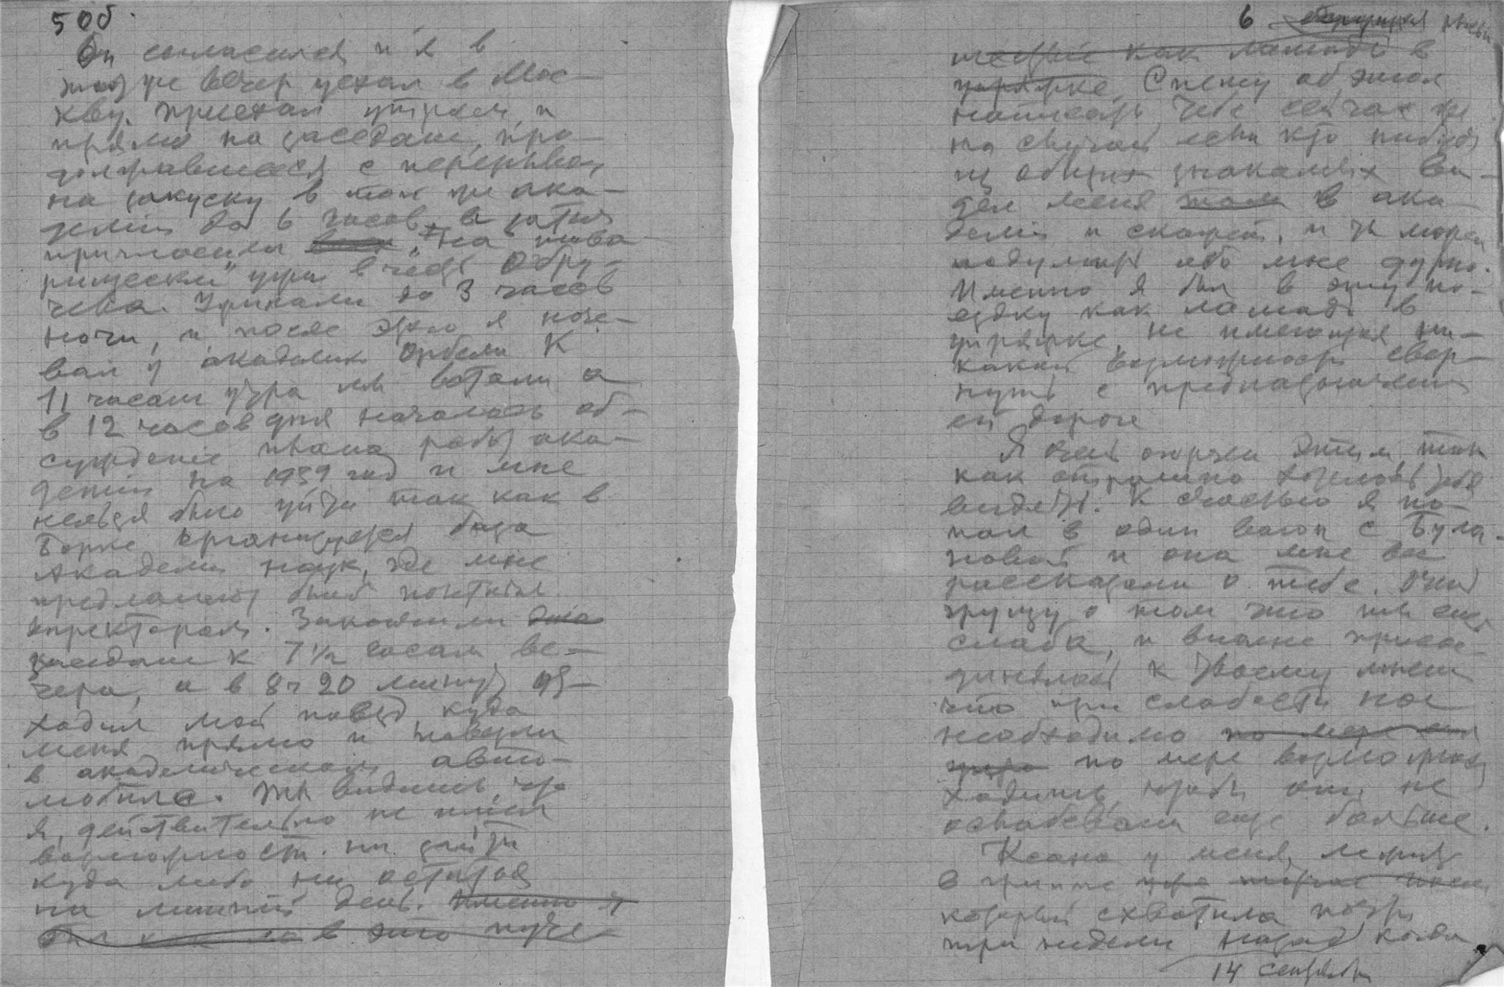 5 об.
Он согласился и я в
тот же вечер уехал в Мос-
кву. Приехал утром и
прямо на заседание, про-
должавшееся с перерывом
на закуску в той же ака-
демии до 6 часов, а затем
пригласили на "това-
рищеский" ужин в честь Обру-
чева. Ужинали до 3 часов
ночи, и после этого я ноче-
вал у академика Орбели. К
11 часам утра мы встали а
в 12 часов дня началось об-
суждение плана работ ака-
демии на 1939 год и мне
нельзя было уйти так как в
Борке организуется база
Академии наук, где мне
предлагают быть
директором. Закончили
заседание к 7 1/2 часам ве-
чера, а в 8 ч 20 минут от-
ходил мой поезд, куда
меня прямо и повезли
в академическом авто-
мобиле. Ты видишь, что
я действительно не имел
возможности ни зайти
куда либо ни остаться
на лишний день. Именно я
был как в это путе-
6
шествие как лошадь в
упряжке. Спешу об этом
написать тебе сейчас же
на случай если кто нибудь
из общих знакомых ви-
дел меня там в ака-
демии и скажет, и ты могла
подумать обо мне дурно.
Именно я был в эту по-
ездку как лошадь в
упряжке, не имеющая ни-
какой возможности свер-
нуть с предназначенной
ей дороги
Я очень огорчен этим так
как страшно хотелось тебя
видеть. К счастью я по-
пал в один вагон с Була-
новой и она мне все
рассказала о тебе. Очень
грущу о том что ты еще
слаба, и вполне присо-
единяюсь к твоему мнению
что при слабости ног
необходимо по мере
по мере возможности
ходить, чтобы они не
ослабевали еще больше.
Ксана у меня лежит
в гриппе
который схватила
три недели назад когда
14 сентября